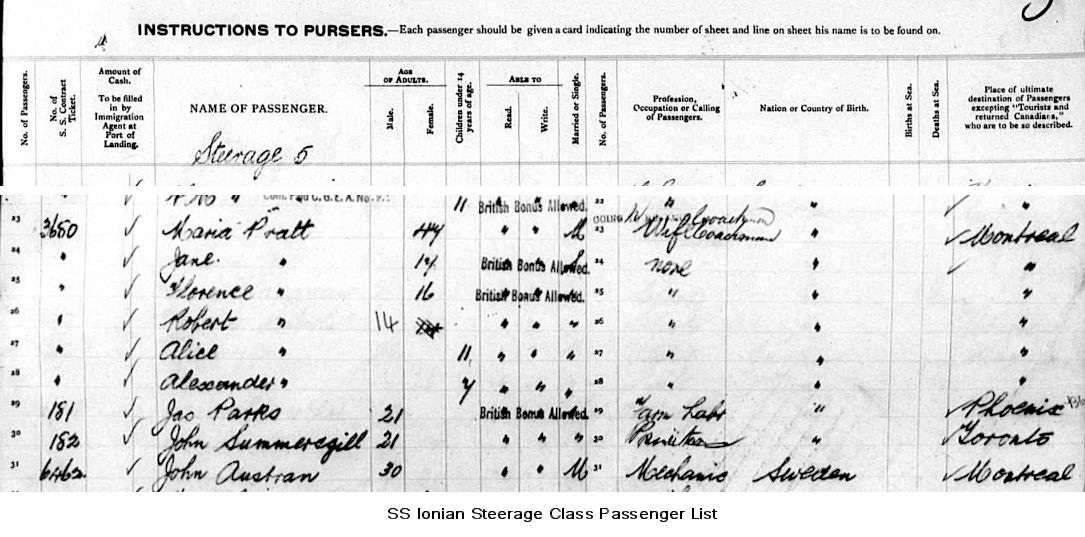 INSTRUCTIONS TO PURSERS.—Each passenger should be given a card indicating the number of sheet and line on sheet his name is to be found on.
No. of Passengers.
No. of S. S. Contract Ticket.
Amount of Cash. To be filled in by Immigration Agent at Port of Landing.
NAME OF PASSENGER.
AGE OF ADULTS.
Male.
Female.
Children under 14 years of age.
ABLE TO
Read.
Write.
Married or Single.
No. of Passengers.
Profession, Occupation or Calling of Passengers.
Nation or Country of Birth.
Births at Sea.
Deaths at Sea.
Place of ultimate destination of Passengers excepting "Tourists and returned Canadians," who are to be so described.
Steerage 5
" 11 British Bonus Allowed. 22 " " "
23 3680 Maria Pratt 44 " " M 23 Wife Coachman " Montreal
24 " Jane " British Bonus Allowed. 24 none " "
25 " Florence " 16 British Bonus Allowed. 25 " " "
26 " Robert " 14 " " " 26 " " "
27 " Alice " 11 " " " 27 " " "
28 " Alexander " 7 " " " 28 " " "
29 181 Jas Parks 21 British Bonus Allowed. 29 Farm Labr " Phoenix
30 182 John Summersgill 21 " " " 30 " Toronto
31 6462 John Austran 30 " " M 31 Mechanic Sweden Montreal
SS Ionian Steerage Class Passenger List